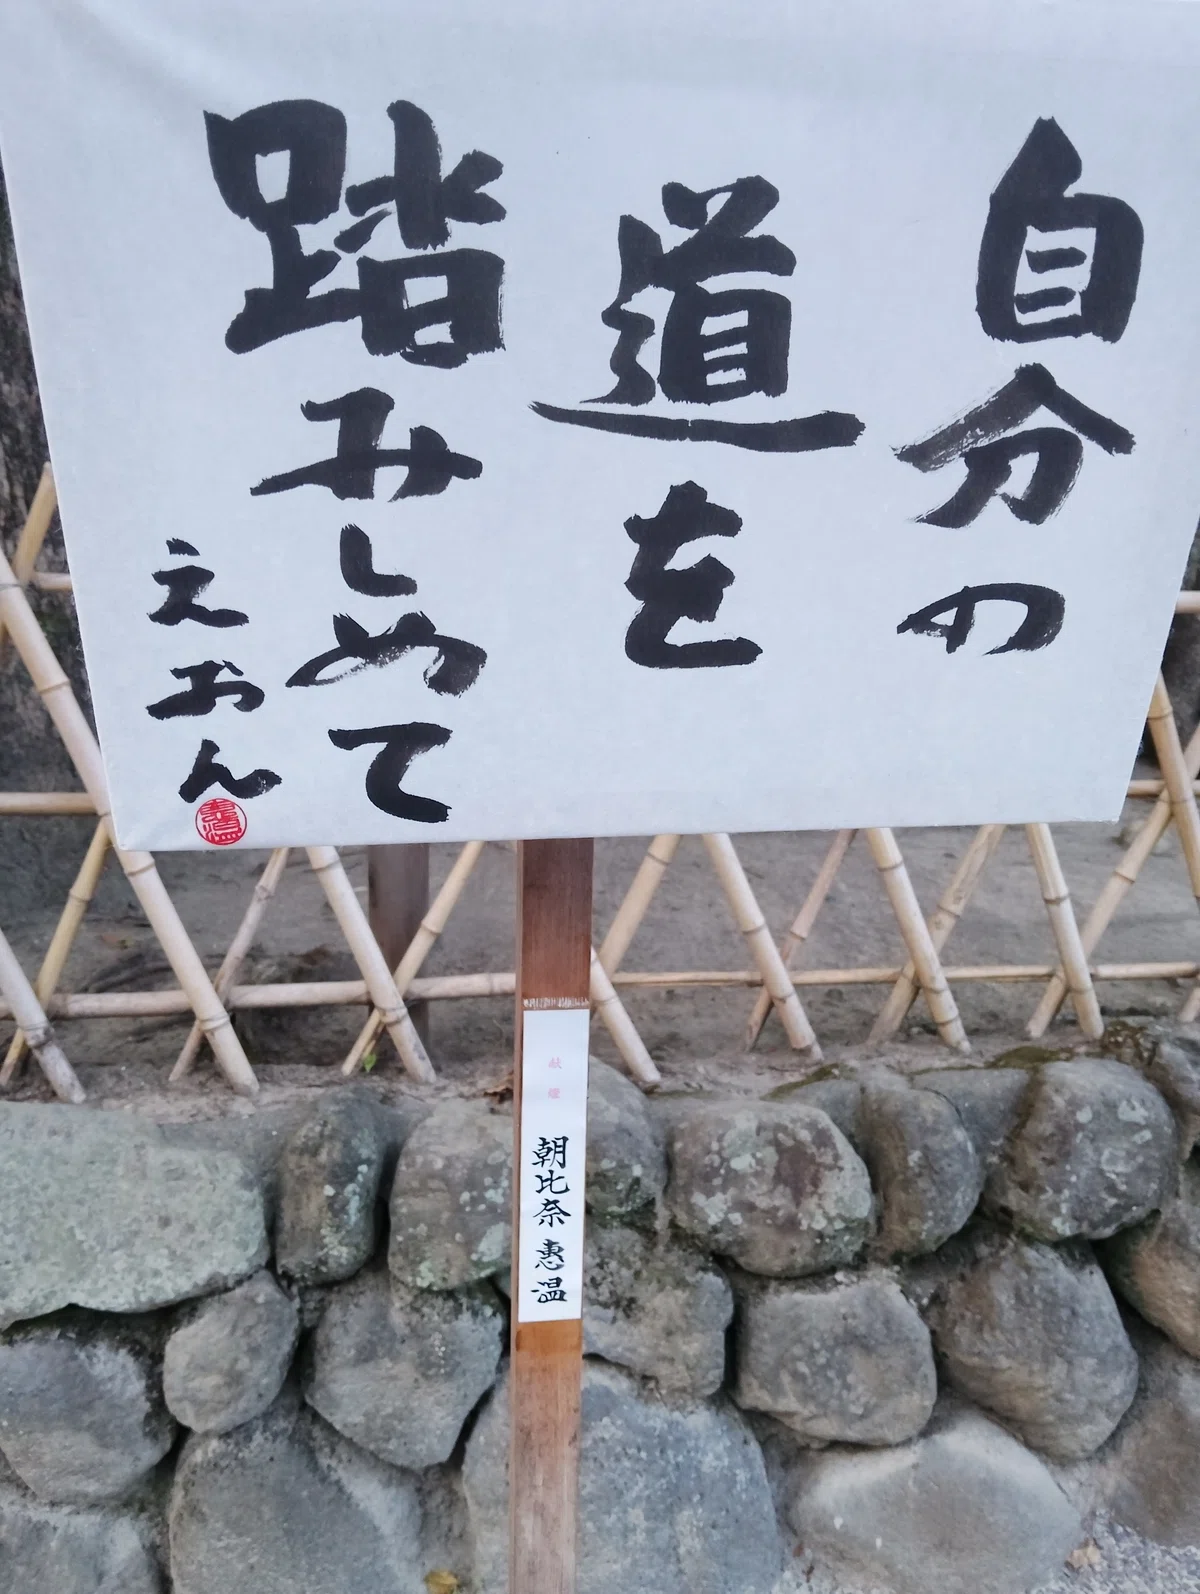 自分の
道を
踏みしめて
えおん
献燈
朝比奈 惠温